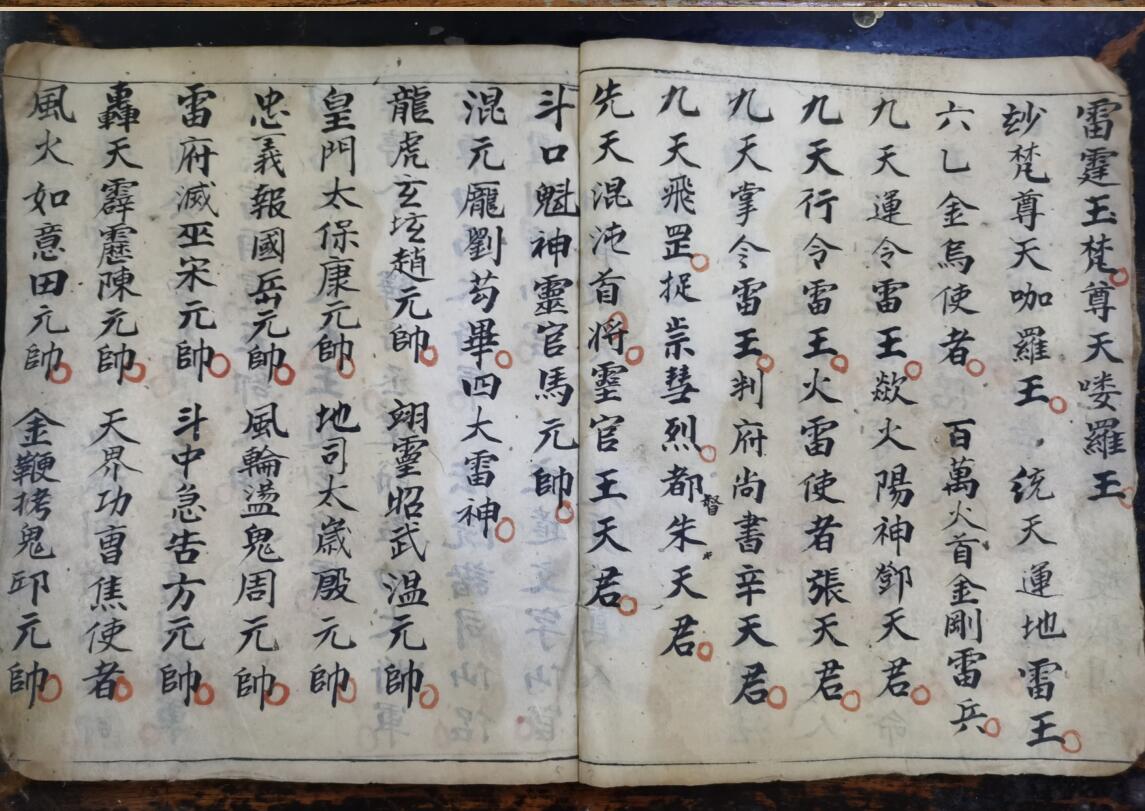 雷霆王梵尊天喽羅王
玅梵尊天咖羅王,統天運地雷王
六乙金烏使者 百萬火首金剛雷兵
九天運令雷王歘火陽神鄧天君
九天行令雷王火雷使者張天君
九天掌令雷王判府尚書辛天君
九天飛罡捉祟彗烈都督朱天君
先天混沌首將靈官王天君
斗口魁神靈官馬元帥
混元龐劉苟畢四大雷神
龍虎玄坛趙元帥 翊靈昭武温元帥
皇門太保康元帥 地司太歲殷元帥
忠義報國岳元帥 風輪盪鬼周元帥
雷府滅巫宋元帥 斗中急告方元帥
轟天霹靂陳元帥 天界功曹焦使者
風火如意田元帥 金鞭拷鬼邱元帥